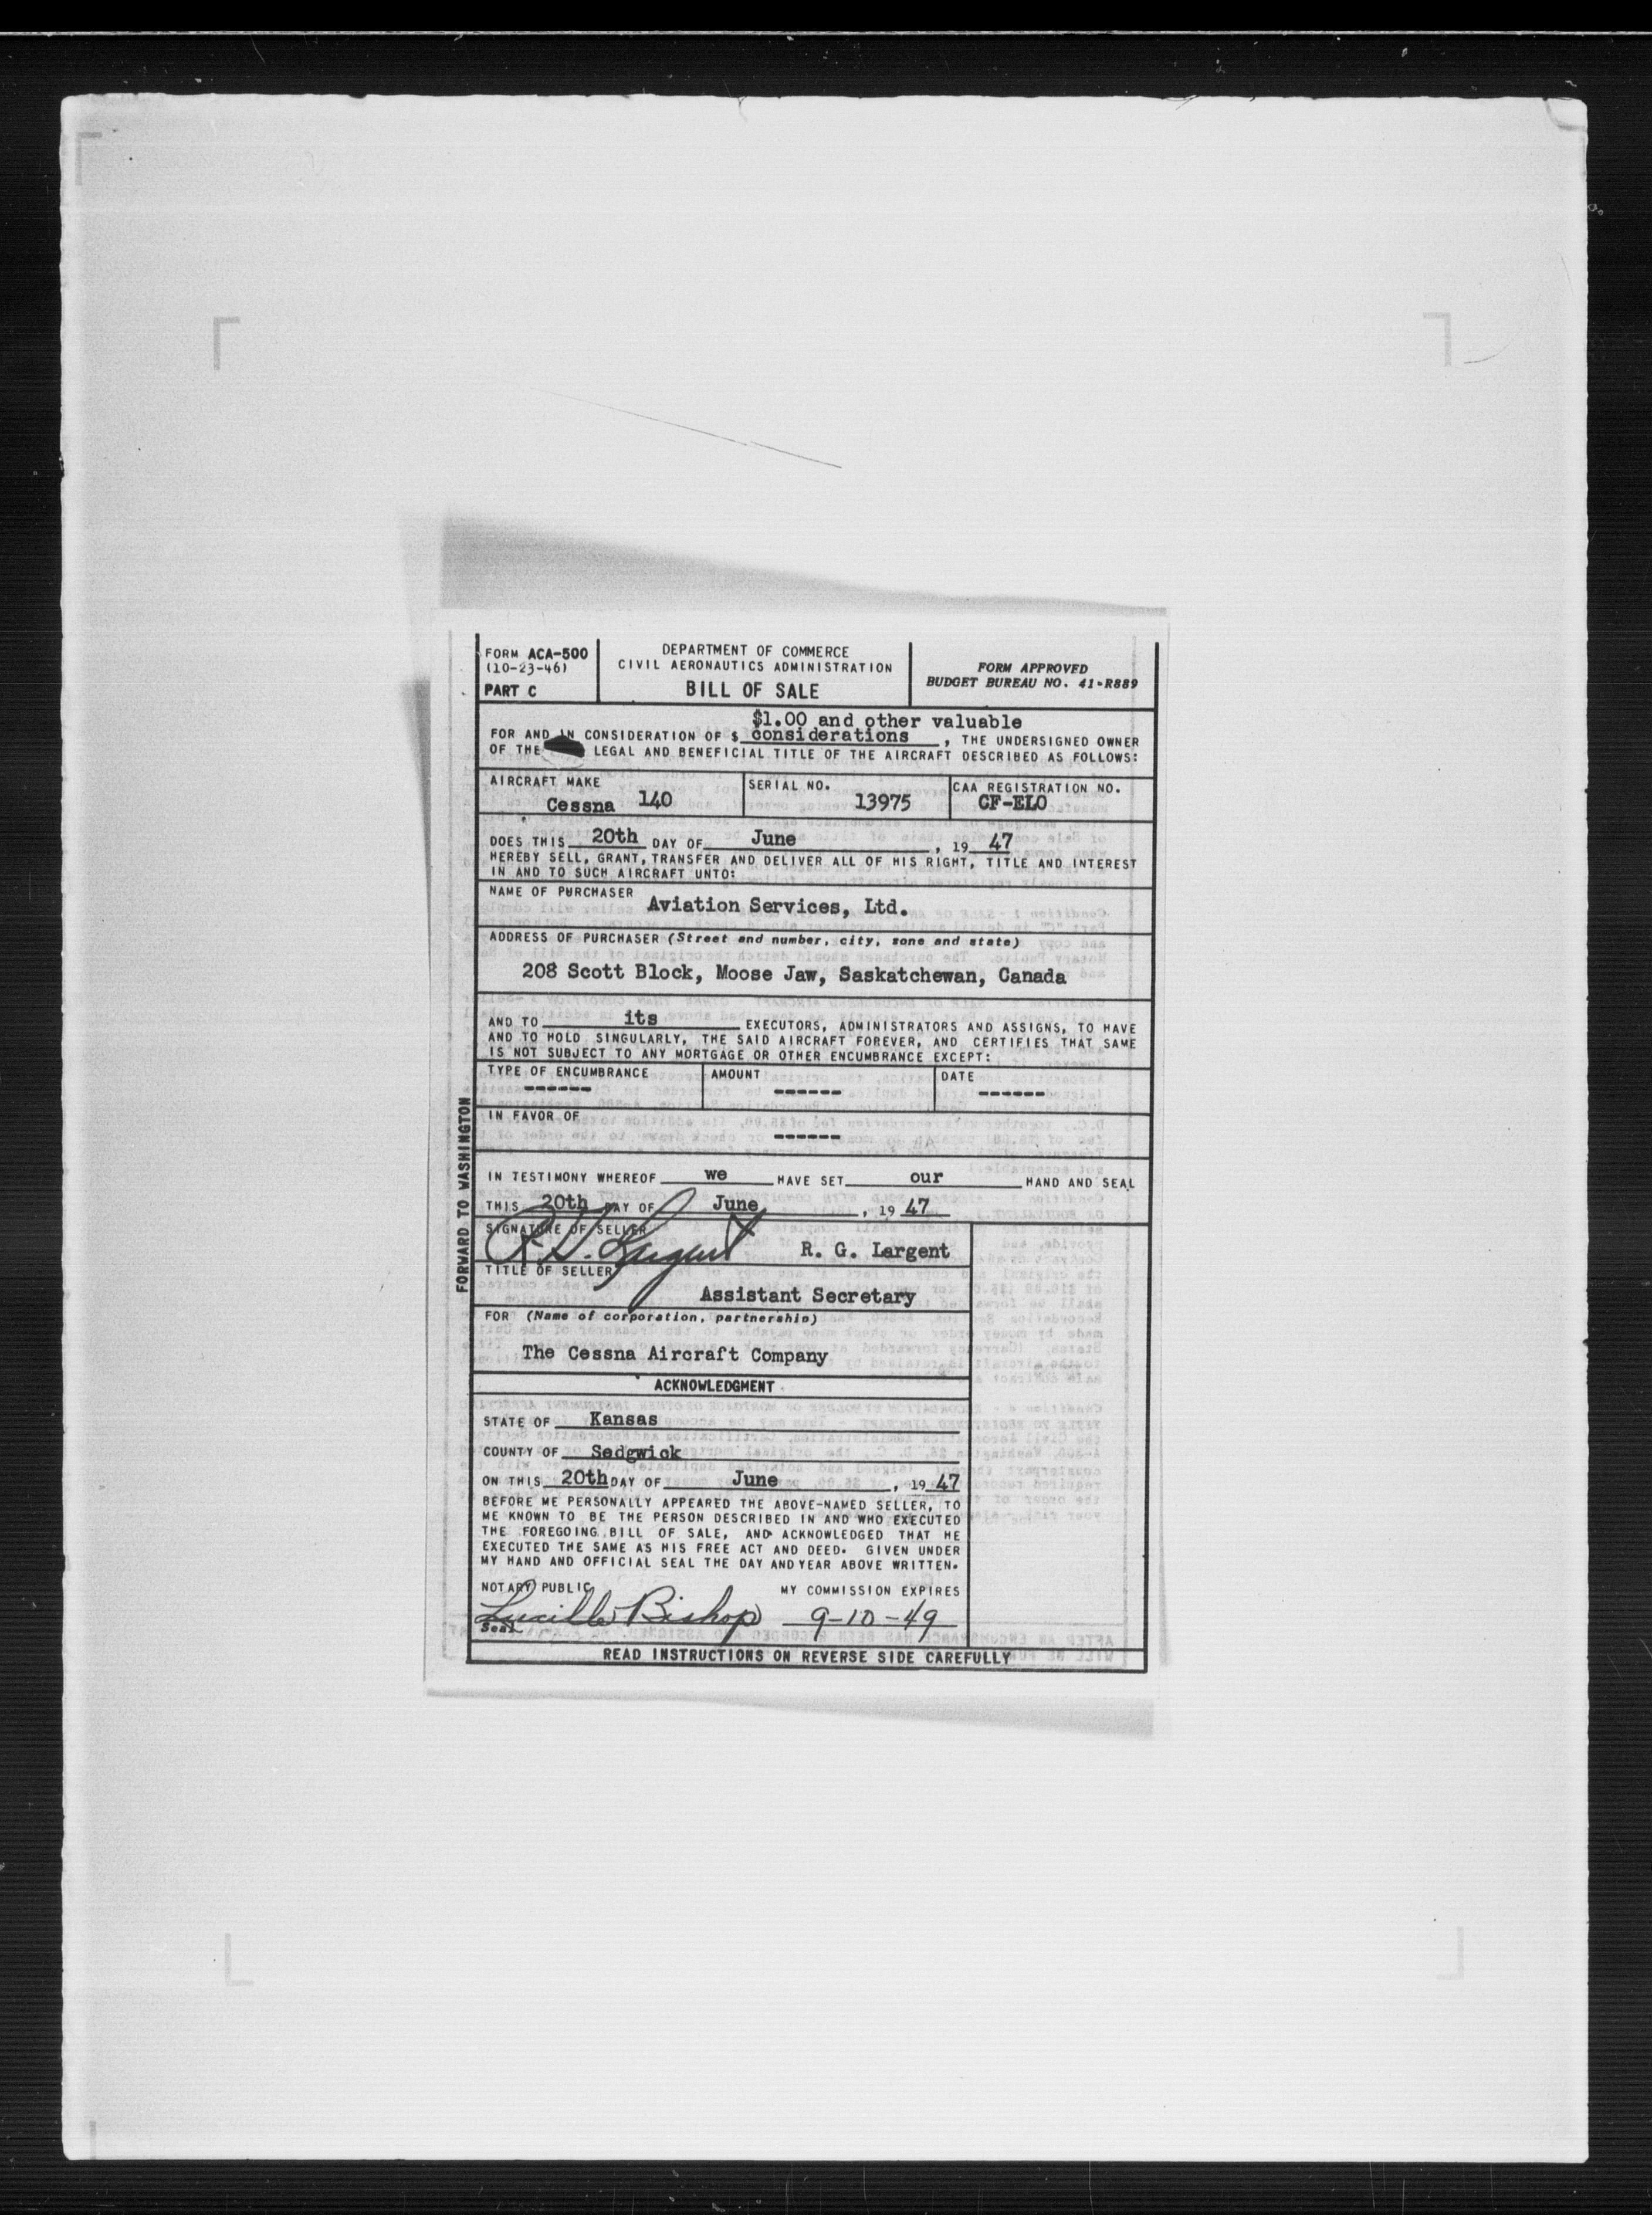 FORM ACA-500
(10-23-46)
PART C
DEPARTMENT OF COMMERCE
CIVIL AERONAUTICS ADMINISTRATION
BILL OF SALE
FORM APPROVED
BUDGET BUREAU NO. 41-R889
$1.00 and other valuable
FOR AND IN CONSIDERATION OF $ considerations, THE UNDERSIGNED OWNER
OF THE LEGAL AND BENEFICIAL TITLE OF THE AIRCRAFT DESCRIBED AS FOLLOWS:
AIRCRAFT MAKE
Cessna 140
SERIAL NO.
13975
CAA REGISTRATION NO.
CF-ELO
DOES THIS 20th DAY OF June, 19 47
HEREBY SELL, GRANT, TRANSFER AND DELIVER ALL OF HIS RIGHT, TITLE AND INTEREST
IN AND TO SUCH AIRCRAFT UNTO:
NAME OF PURCHASER
Aviation Services, Ltd.
ADDRESS OF PURCHASER (Street and number, city, zone and state)
208 Scott Block, Moose Jaw, Saskatchewan, Canada
AND TO its EXECUTORS, ADMINISTRATORS AND ASSIGNS, TO HAVE
AND TO HOLD SINGULARLY, THE SAID AIRCRAFT FOREVER, AND CERTIFIES THAT SAME
IS NOT SUBJECT TO ANY MORTGAGE OR OTHER ENCUMBRANCE EXCEPT:
TYPE OF ENCUMBRANCE
------
AMOUNT
------
DATE
------
IN FAVOR OF
------
IN TESTIMONY WHEREOF we HAVE SET our HAND AND SEAL
THIS 20th DAY OF June, 19 47
SIGNATURE OF SELLER
R. G. Largent R. G. Largent
TITLE OF SELLER
Assistant Secretary
FOR (Name of corporation, partnership)
The Cessna Aircraft Company
ACKNOWLEDGMENT
STATE OF Kansas
COUNTY OF Sedgwick
ON THIS 20th DAY OF June, 19 47
BEFORE ME PERSONALLY APPEARED THE ABOVE-NAMED SELLER, TO
ME KNOWN TO BE THE PERSON DESCRIBED IN AND WHO EXECUTED
THE FOREGOING BILL OF SALE, AND ACKNOWLEDGED THAT HE
EXECUTED THE SAME AS HIS FREE ACT AND DEED. GIVEN UNDER
MY HAND AND OFFICIAL SEAL THE DAY AND YEAR ABOVE WRITTEN.
NOTARY PUBLIC
MY COMMISSION EXPIRES
Lucille Bishop 9-10-49
Seal
READ INSTRUCTIONS ON REVERSE SIDE CAREFULLY
FORWARD TO WASHINGTON